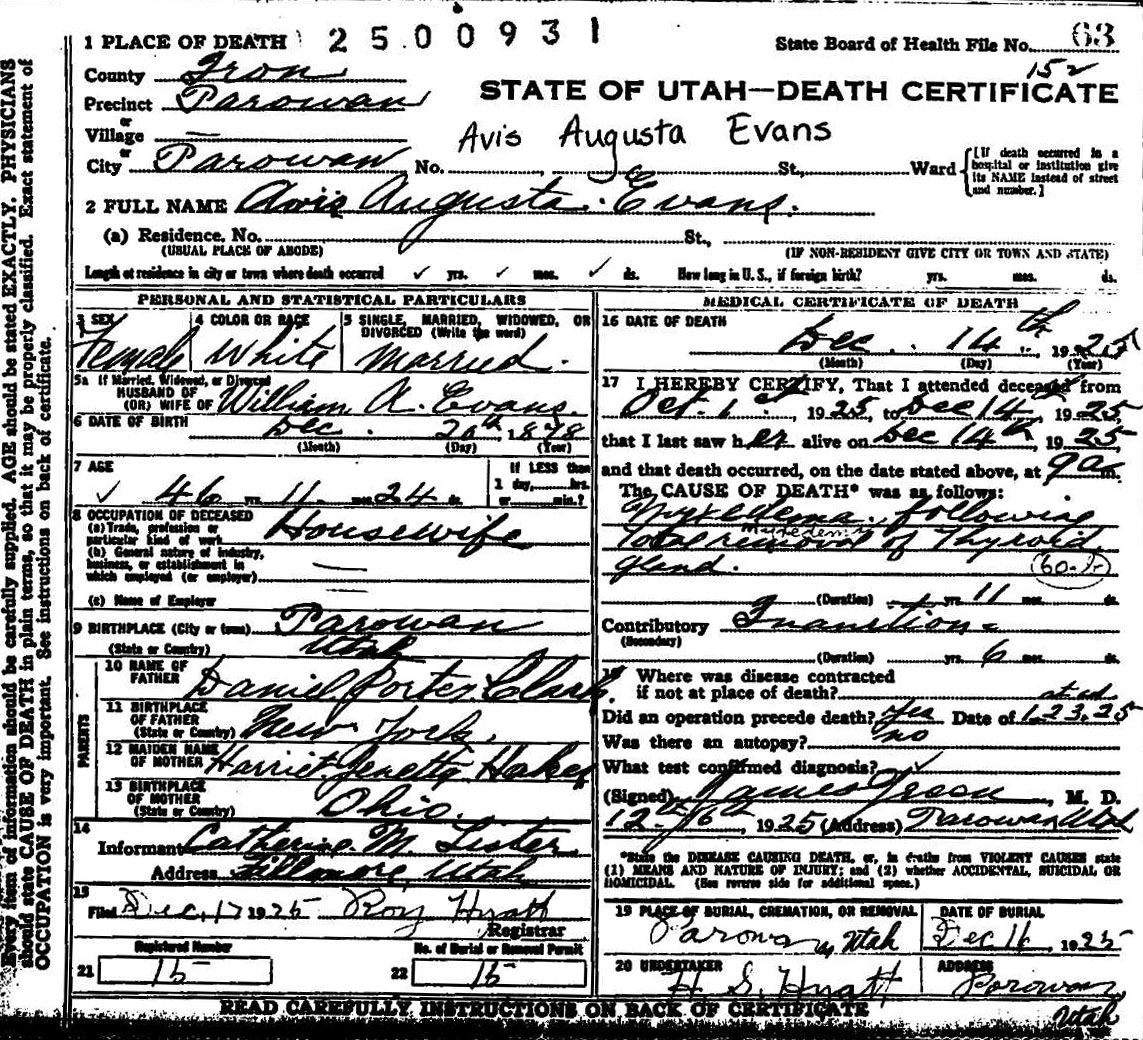 1 PLACE OF DEATH 2500931 State Board of Health File No. 63
County Iron 152
Precinct Parowan STATE OF UTAH—DEATH CERTIFICATE
or
Village —
or
Avis Augusta Evans
City Parowan No. St., Ward [If death occurred in a hospital or institution give its NAME instead of street and number.]
2 FULL NAME Avis Augusta Evans.
(a) Residence. No. St.,
(USUAL PLACE OF ABODE) (IF NON-RESIDENT GIVE CITY OR TOWN AND STATE)
Length of residence in city or town where death occurred ✓ yrs. ✓ mos. ✓ ds. How long in U. S., if foreign birth? yrs. mos. ds.
PERSONAL AND STATISTICAL PARTICULARS
3 SEX 4 COLOR OR RACE 5 SINGLE, MARRIED, WIDOWED, OR
DIVORCED (Write the word)
Female White Married.
5a If Married, Widowed, or Divorced
HUSBAND OF
(OR) WIFE OF William A. Evans.
6 DATE OF BIRTH Dec. 20th 1878
(Month) (Day) (Year)
7 AGE If LESS than
✓ 46 yrs. 11 mos. 24 ds. 1 day, hrs.
or min.?
8 OCCUPATION OF DECEASED
(a) Trade, profession or
particular kind of work Housewife
(b) General nature of industry,
business, or establishment in
which employed (or employer)
(c) Name of Employer
9 BIRTHPLACE (City or town) Parowan
(State or Country) Utah
PARENTS
10 NAME OF
FATHER Daniel Porter Clark
11 BIRTHPLACE
OF FATHER
(State or Country) New York.
12 MAIDEN NAME
OF MOTHER Harriet Jenetta
13 BIRTHPLACE
OF MOTHER
(State or Country) Ohio.
14
Informant Catherine M. Lister
Address Fillmore, Utah
15
Filed Dec. 17 1925 Roy Hyatt
Registrar
Registered Number No. of Burial or Removal Permit
21 15 22 15
MEDICAL CERTIFICATE OF DEATH
16 DATE OF DEATH
Dec. 14th, 1925
(Month) (Day) (Year)
17 I HEREBY CERTIFY, That I attended deceased from
Oct. 1st, 1925, to Dec 14, 1925
that I last saw her alive on Dec 14th, 1925
and that death occurred, on the date stated above, at 9 a m.
The CAUSE OF DEATH* was as follows:
Myxedema, following
Myxedema
total removal of Thyroid
gland.
(Duration) yrs. 11 mos. ds.
Contributory Inanition
(Secondary)
(Duration) yrs. 6 mos. ds.
18 Where was disease contracted
if not at place of death?
Did an operation precede death? Yes Date of 1.23.25
Was there an autopsy? no
What test confirmed diagnosis? ✓
(Signed) James Green, M. D.
12th 16th, 1925 (Address) Parowan Utah
*State the DISEASE CAUSING DEATH, or, in deaths from VIOLENT CAUSES state
(1) MEANS AND NATURE OF INJURY; and (2) whether ACCIDENTAL, SUICIDAL OR
HOMICIDAL. (See reverse side for additional space.)
19 PLACE OF BURIAL, CREMATION, OR REMOVAL DATE OF BURIAL
Parowan, Utah Dec 16, 1925
20 UNDERTAKER ADDRESS
H. S. Hyatt Parowan,
Utah
READ CAREFULLY INSTRUCTIONS ON BACK OF CERTIFICATE
Every item of information should be carefully supplied. AGE should be stated EXACTLY. PHYSICIANS
should state CAUSE OF DEATH in plain terms, so that it may be properly classified. Exact statement of
OCCUPATION is very important. See instructions on back of certificate.